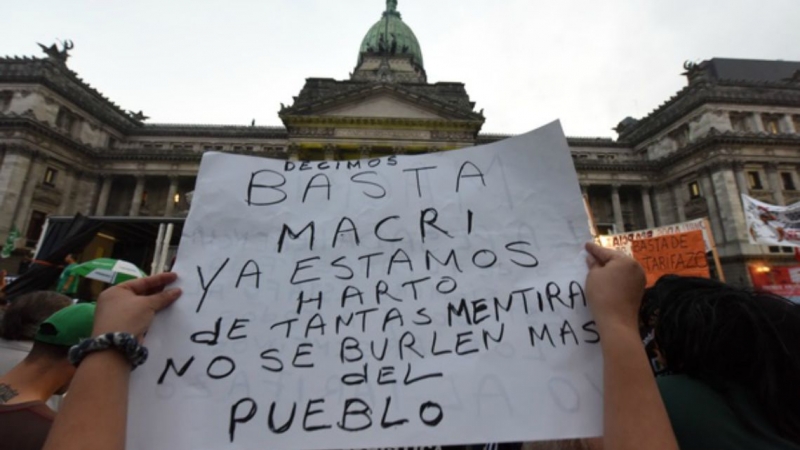 DECIMOS
BASTA
MACRI
YA ESTAMOS
HARTO
de TANTAS MENTIRA
NO SE BURLEN MAS
deL
PUEBLO
BASTA DE
TARIFAZO